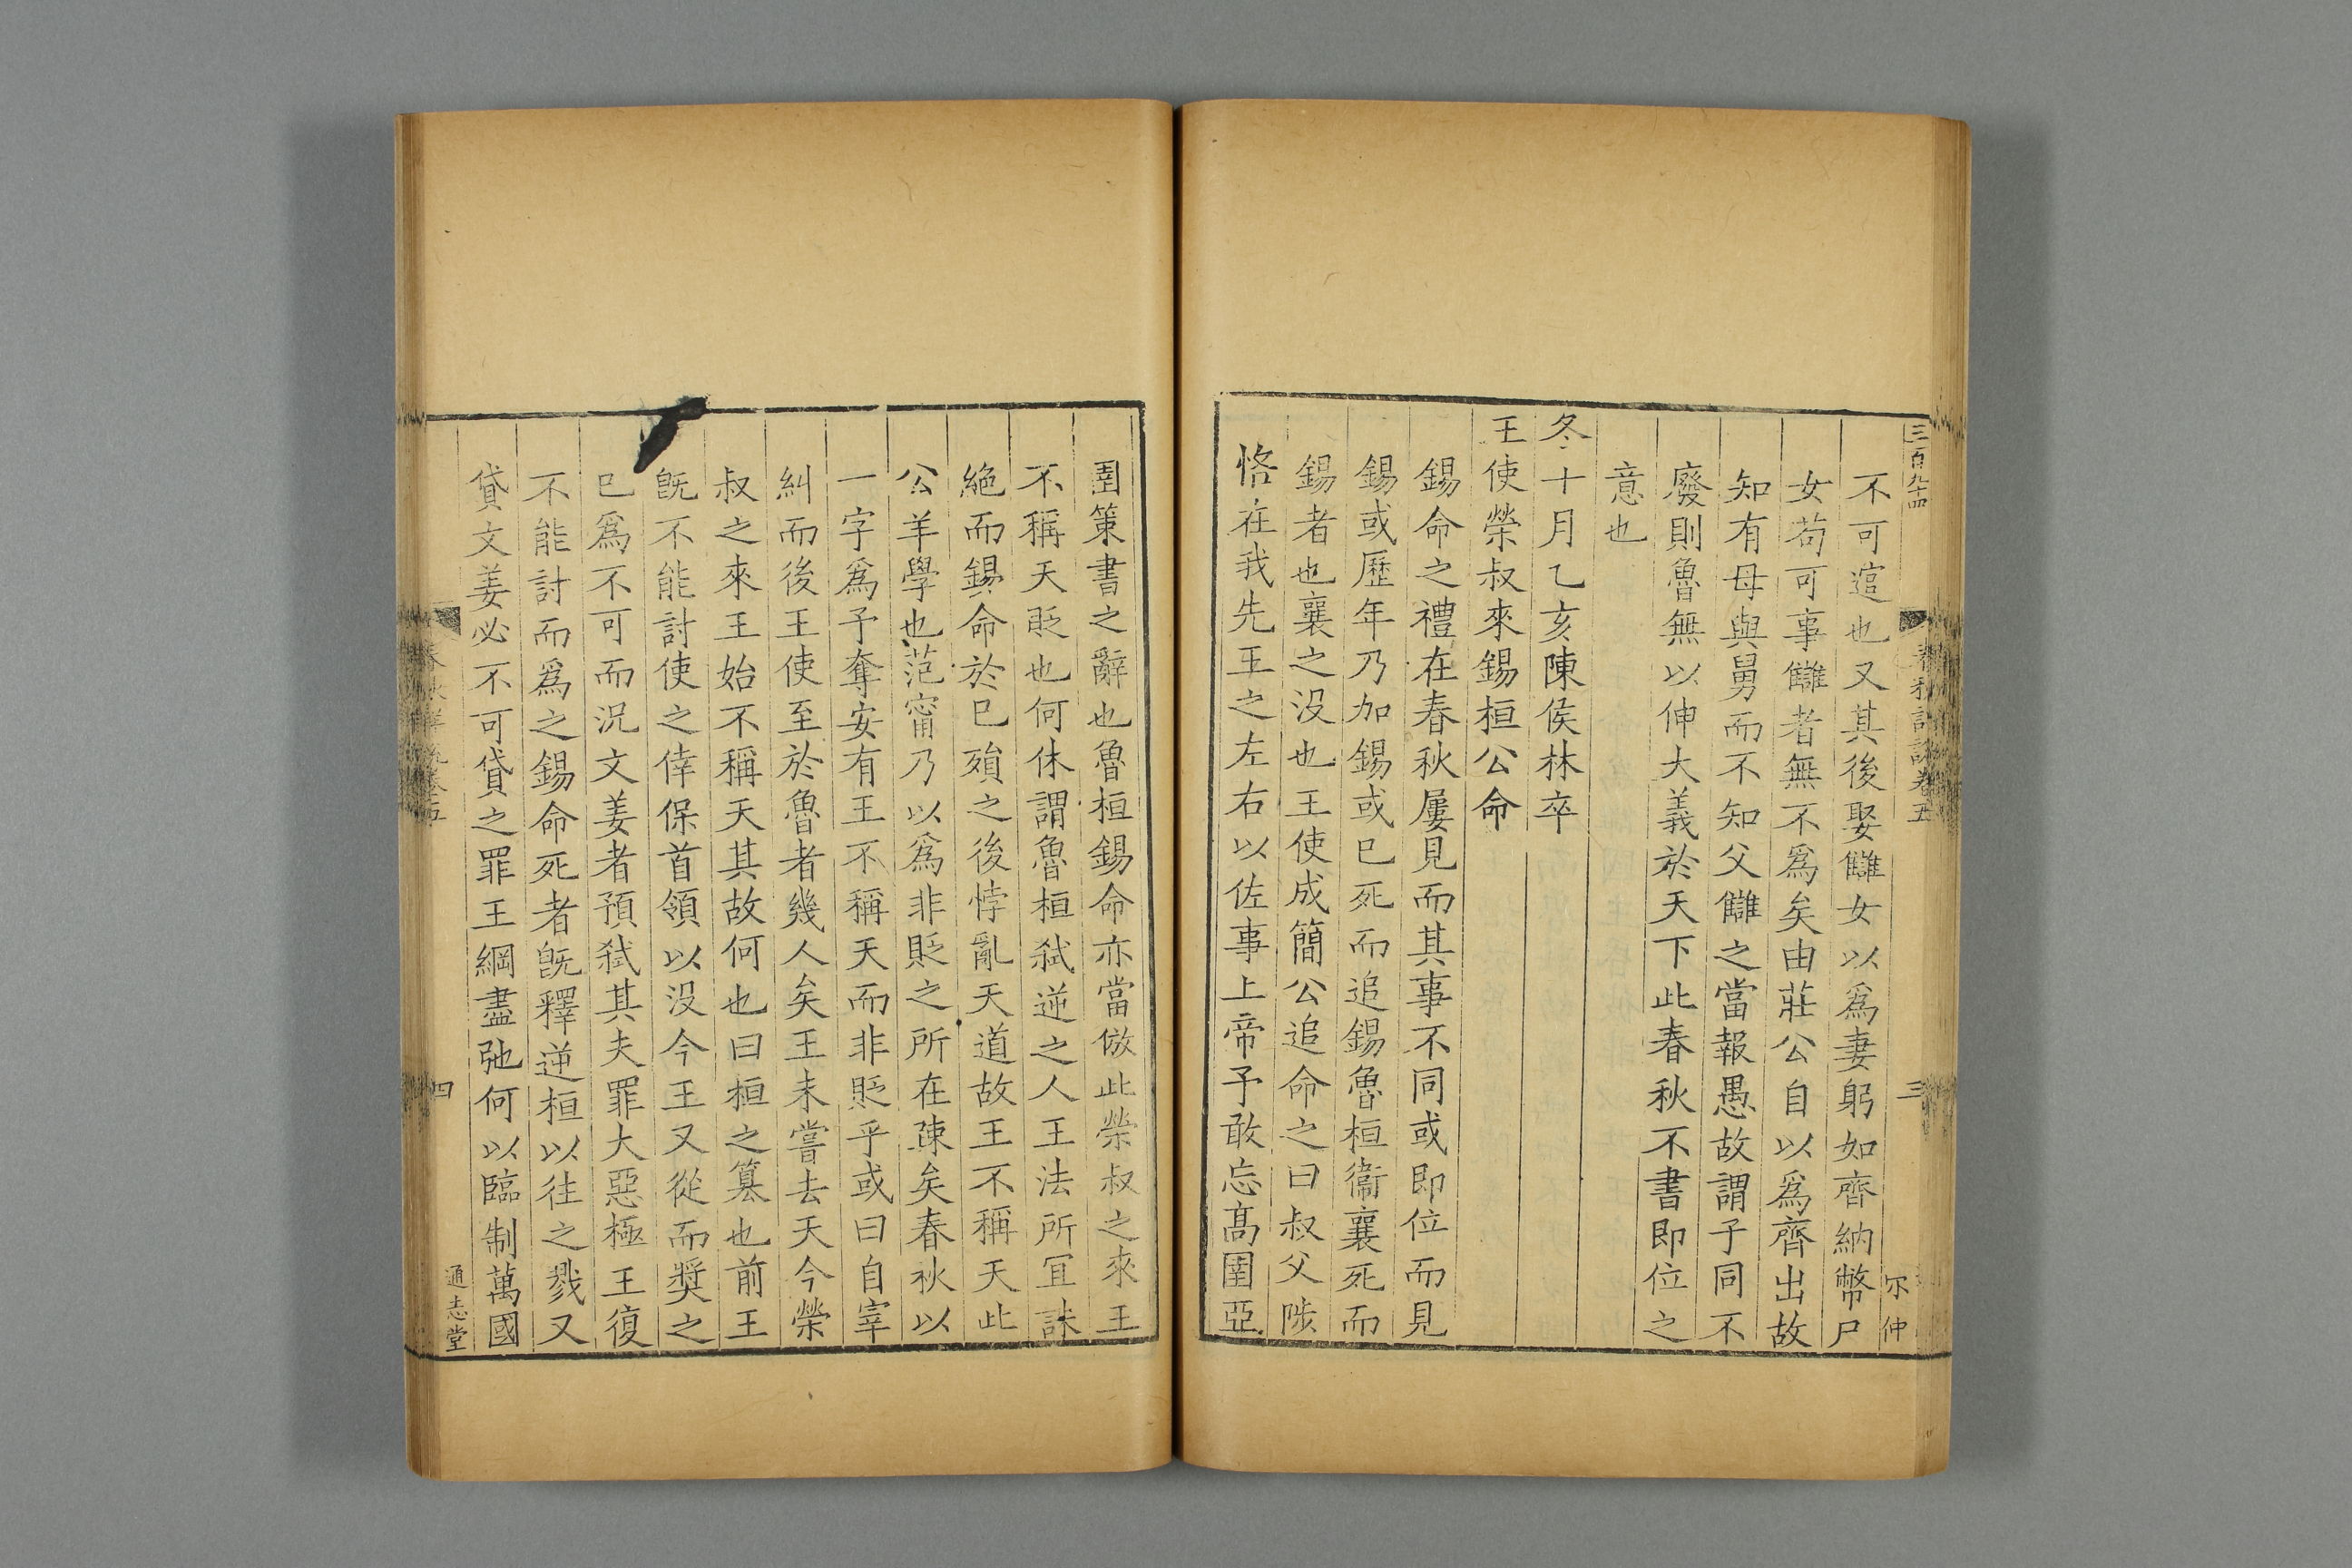 三百九十四
春秋詳說卷五
三
尔仲
不可逭也又其後娶讎女以爲妻躬如齊納幣尸
女苟可事讎者無不爲矣由莊公自以爲齊出故
知有母與舅而不知父讎之當報愚故謂子同不
廢則魯無以伸大義於天下此春秋不書即位之
意也
冬十月乙亥陳侯林卒
王使榮叔來錫桓公命
錫命之禮在春秋屢見而其事不同或即位而見
錫或歷年乃加錫或巳死而追錫魯桓衞襄死而
錫者也襄之没也王使成簡公追命之曰叔父陟
恪在我先王之左右以佐事上帝予敢忘髙圉亞
圉策書之辭也魯桓錫命亦當倣此榮叔之來王
不稱天貶也何休謂魯桓弑逆之人王法所宜誅
絶而錫命於巳殞之後悖亂天道故王不稱天此
公羊學也范甯乃以爲非貶之所在踈矣春秋以
一字爲予奪安有王不稱天而非貶乎或曰自宰
糾而後王使至於魯者幾人矣王未嘗去天今榮
叔之來王始不稱天其故何也曰桓之簒也前王
旣不能討使之倖保首領以没今王又從而奬之
巳爲不可而況文姜者預弑其夫罪大惡極王復
不能討而爲之錫命死者旣釋逆桓以往之戮又
貸文姜必不可貸之罪王綱盡弛何以臨制萬國
春秋詳說卷五
四
通志堂